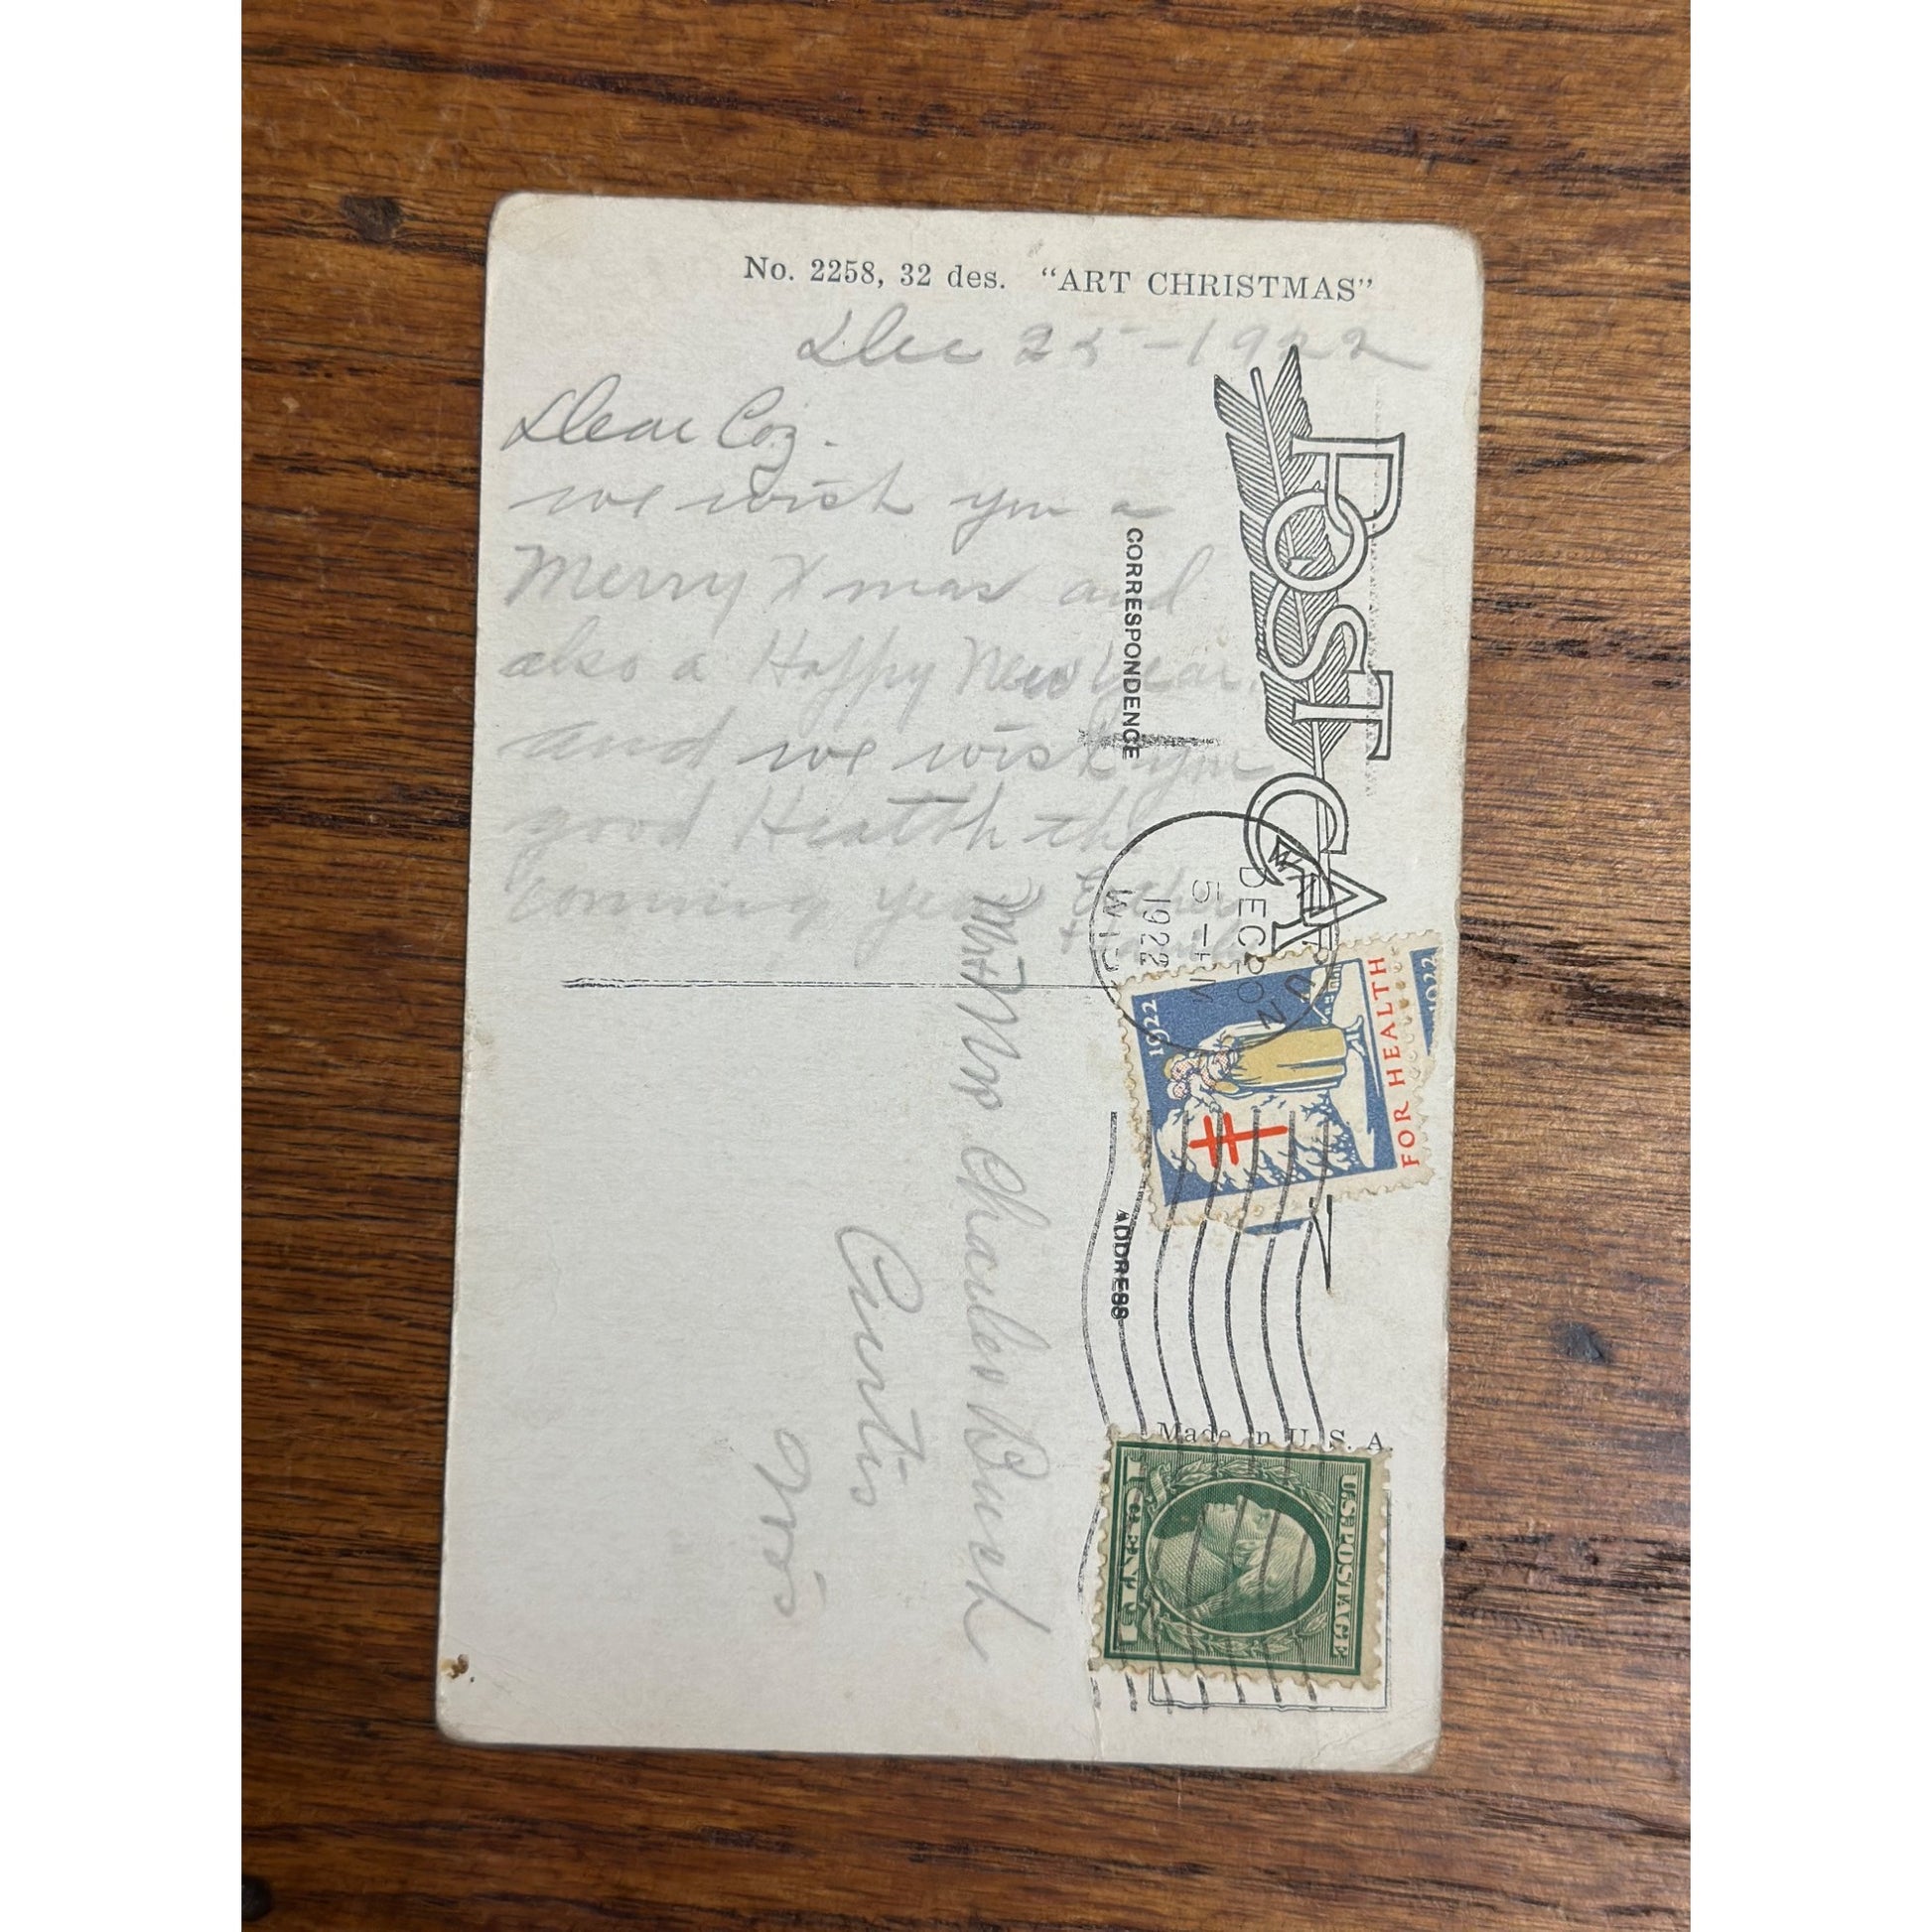 No. 2258, 32 des. "ART CHRISTMAS"
Dec 25-1922
Dear Coz.
we wish you a
Merry Xmas and
also a Happy New Year.
and we wish you
good Heatth the
comming year Esther
+ Family
POST CA
CORRESPONDENCE
DEC 20
5-PM
1922
WIS
1922
FOR HEALTH
1922
ADDRESS
Made in U. S. A.
U.S. POSTAGE
1 CENT 1
Mr + Mrs Charles Burch
Curtis
Wis